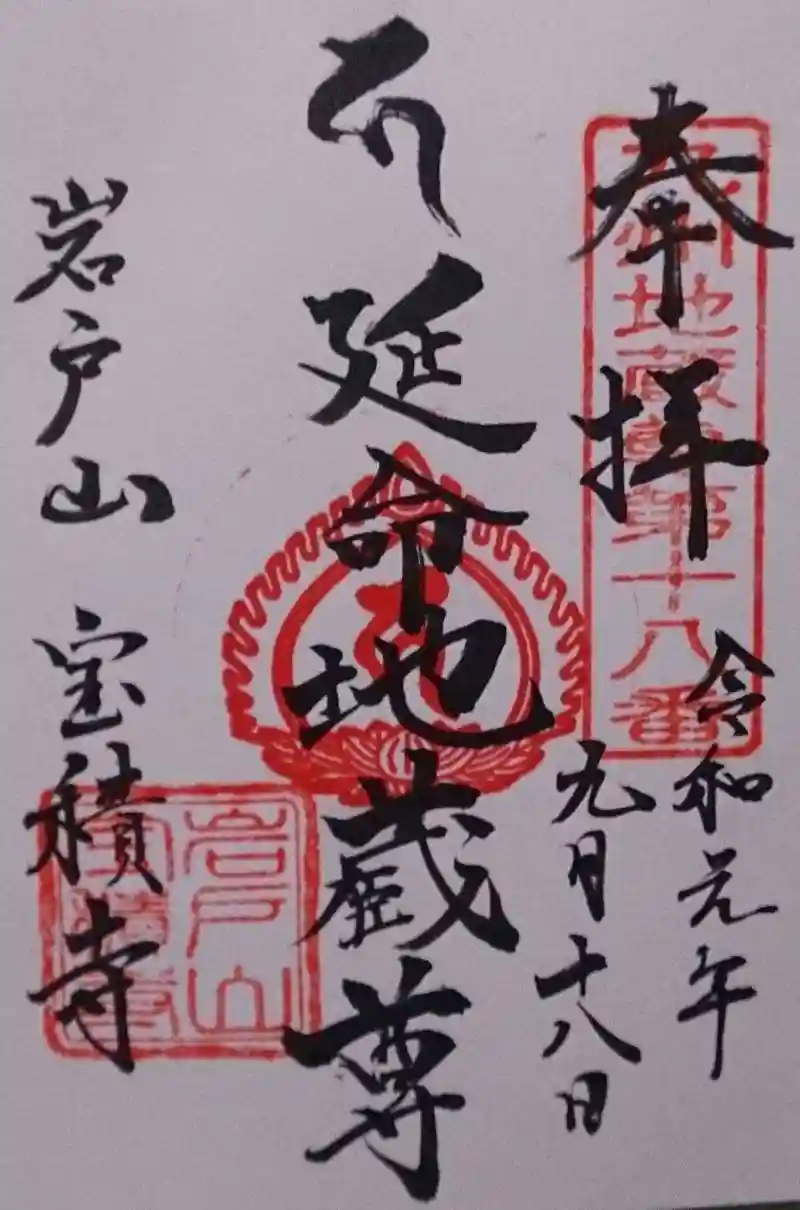 奉拝
九州地蔵尊第十八番
令和元年
九月十八日
延命地蔵尊
岩戸山 宝積寺
岩戸山
宝積寺